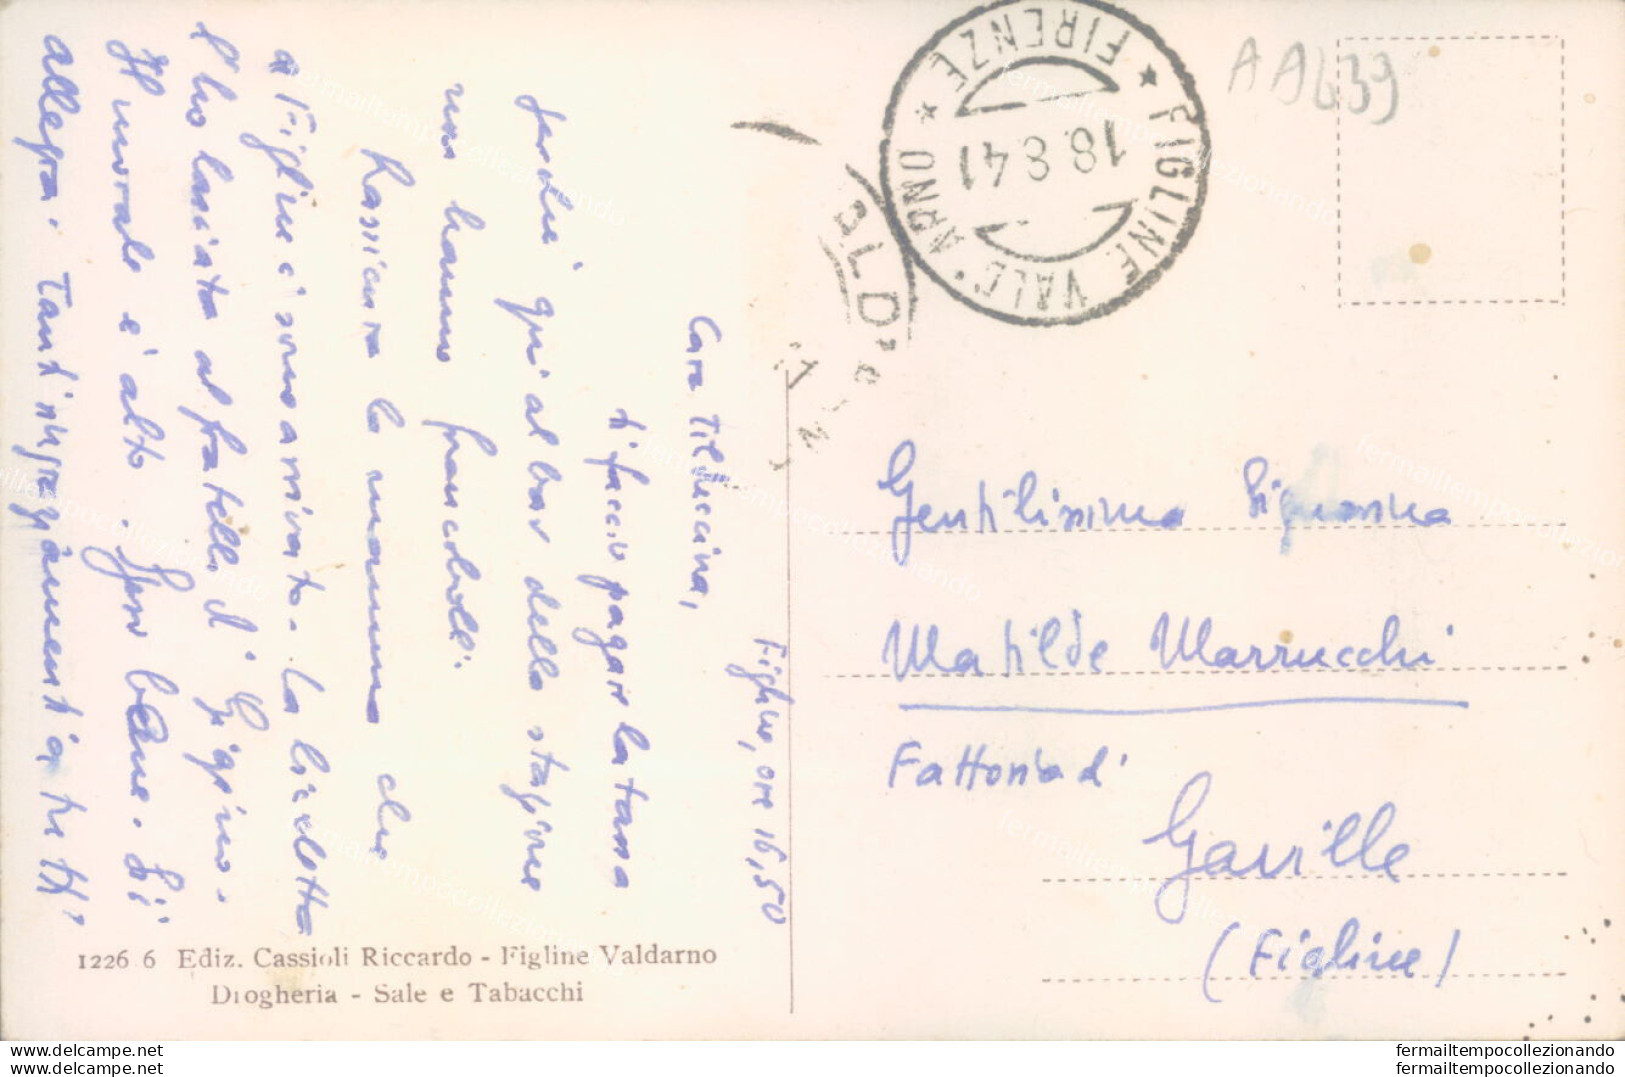 Figline, ore 16,50
Cara Tilduccina,
ti faccio pagar la tassa
perché qui al bar della stazione
non hanno francobolli.
Rassicura la mamma che
a Figline ci sono arrivato. La bicicletta
l'ho lasciata al fratello di Gigino.
Il morale è alto. Sono bene. Sii
allegra. Tanti ringraziamenti a tutti
1226 6 Ediz. Cassioli Riccardo - Figline Valdarno
Drogheria - Sale e Tabacchi
FIGLINE VALD'ARNO * FIRENZE *
18.8.41
AA639
Gentilissima Signorina
Matilde Marrucchi
Fattoria di
Gaville
(Figline)
www.delcampe.net
www.delcampe.net
fermailtempocollezionando
fermailtempocollezionando